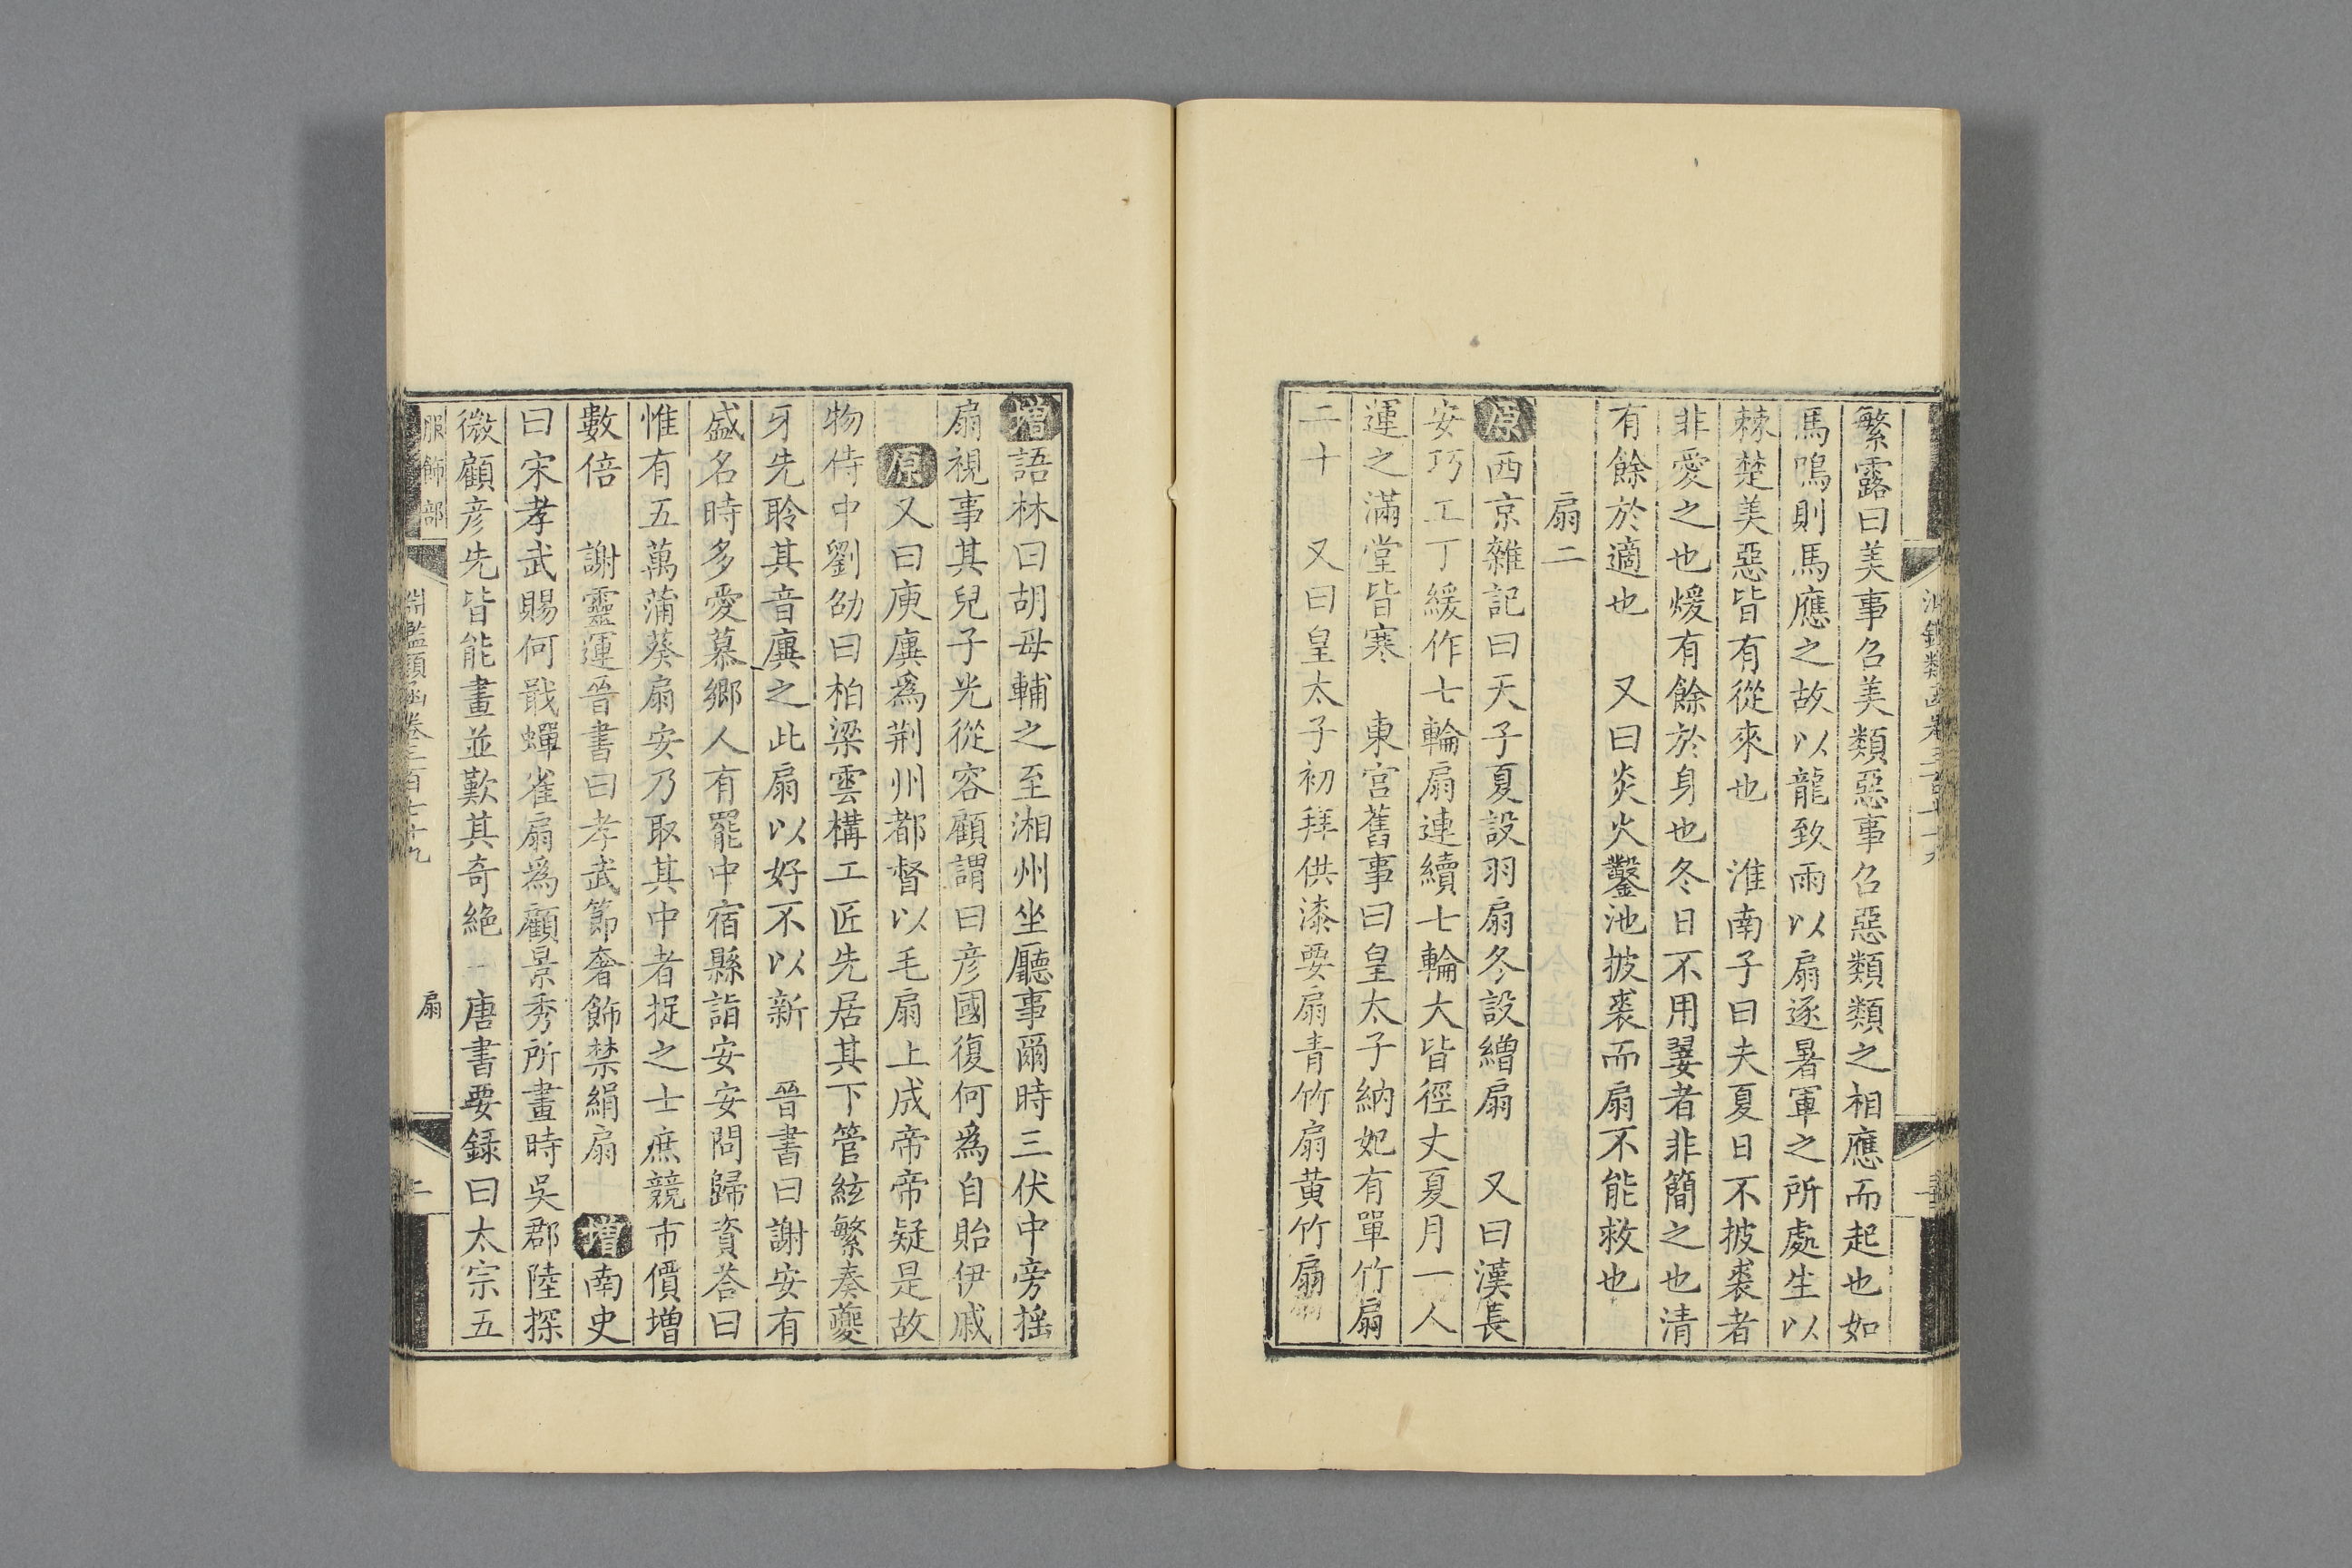 繁露曰美事召美類惡事召惡類類之相應而起也如
馬鳴則馬應之故以龍致雨以扇逐暑軍之所處生以
棘楚美惡皆有從來也 淮南子曰夫夏日不披裘者
非愛之也煖有餘於身也冬日不用翣者非簡之也清
有餘於適也 又曰炎火鑿池披裘而扇不能救也
扇二
原西京雜記曰天子夏設羽扇冬設繒扇 又曰漢長
安巧工丁緩作七輪扇連續七輪大皆徑丈夏月一人
運之滿堂皆寒 東宮舊事曰皇太子納妃有單竹扇
二十 又曰皇太子初拜供漆要扇青竹扇黃竹扇
增語林曰胡毋輔之至湘州坐廳事爾時三伏中旁搖
扇視事其兒子光從容顧謂曰彥國復何爲自貽伊戚
原又曰庾廙爲荆州都督以毛扇上成帝帝疑是故
物侍中劉劭曰柏梁雲構工匠先居其下管絃繁奏夔
牙先聆其音廙之此扇以好不以新 晉書曰謝安有
盛名時多愛慕鄉人有罷中宿縣詣安安問歸資荅曰
惟有五萬蒲葵扇安乃取其中者捉之士庶競市價增
數倍 謝靈運晉書曰孝武節奢飾禁絹扇 增南史
曰宋孝武賜何戢蟬雀扇爲顧景秀所畫時吳郡陸探
微顧彥先皆能畫並歎其奇絶 唐書要録曰太宗五
服飾部
淵鑑類函卷三百七十九
扇
二